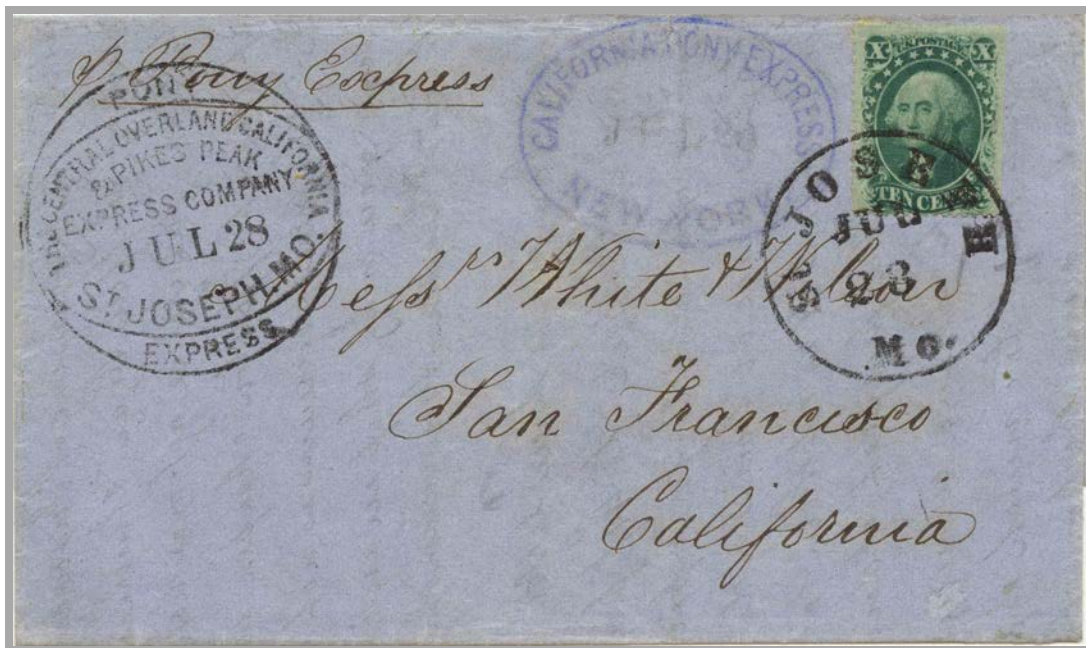 p Pony Express
PONY
THE CENTRAL OVERLAND CALIFORNIA
& PIKES PEAK
EXPRESS COMPANY
JUL 28
ST JOSEPH. MO.
EXPRESS
CALIFORNIA PONY EXPRESS
NEW-YORK
X U.S. POSTAGE X
TEN CENTS
St. JOSEPH
JUL
28
Mo.
Messrs White &
San Francisco
California